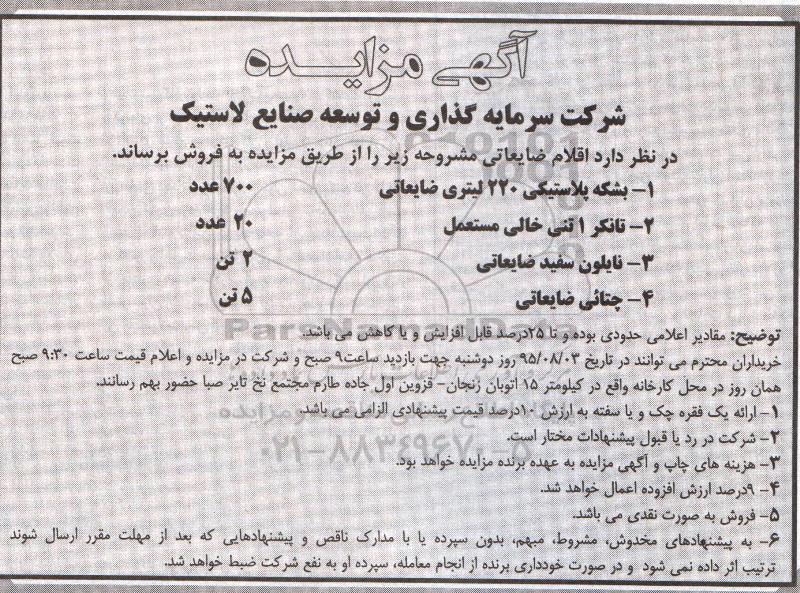 آگهی مزایده
شرکت سرمایه گذاری و توسعه صنایع لاستیک
در نظر دارد اقلام ضایعاتی مشروحه زیر را از طریق مزایده به فروش برساند.
۱- بشکه پلاستیکی ۲۲۰ لیتری ضایعاتی ۷۰۰ عدد
۲- تانکر ۱ تنی خالی مستعمل ۲۰ عدد
۳- نایلون سفید ضایعاتی ۲ تن
۴- چتائی ضایعاتی ۵ تن
ParsNamadData
توضیح: مقادیر اعلامی حدودی بوده و تا ۲۵درصد قابل افزایش و یا کاهش می باشد.
خریداران محترم می توانند در تاریخ ۹۵/۰۸/۰۳ روز دوشنبه جهت بازدید ساعت۹ صبح و شرکت در مزایده و اعلام قیمت ساعت ۹:۳۰ صبح
همان روز در محل کارخانه واقع در کیلومتر ۱۵ اتوبان زنجان- قزوین اول جاده طارم مجتمع نخ تایر صبا حضور بهم رسانند.
۱- ارائه یک فقره چک و یا سفته به ارزش ۱۰درصد قیمت پیشنهادی الزامی می باشد.
۲- شرکت در رد یا قبول پیشنهادات مختار است.
۰۲۱-۸۸۳۴۹۶۷۰-۵
۳- هزینه های چاپ و آگهی مزایده به عهده برنده مزایده خواهد بود.
۴- ۹درصد ارزش افزوده اعمال خواهد شد.
۵- فروش به صورت نقدی می باشد.
۶- به پیشنهادهای مخدوش، مشروط، مبهم، بدون سپرده یا با مدارک ناقص و پیشنهادهایی که بعد از مهلت مقرر ارسال شوند
ترتیب اثر داده نمی شود و در صورت خودداری برنده از انجام معامله، سپرده او به نفع شرکت ضبط خواهد شد.